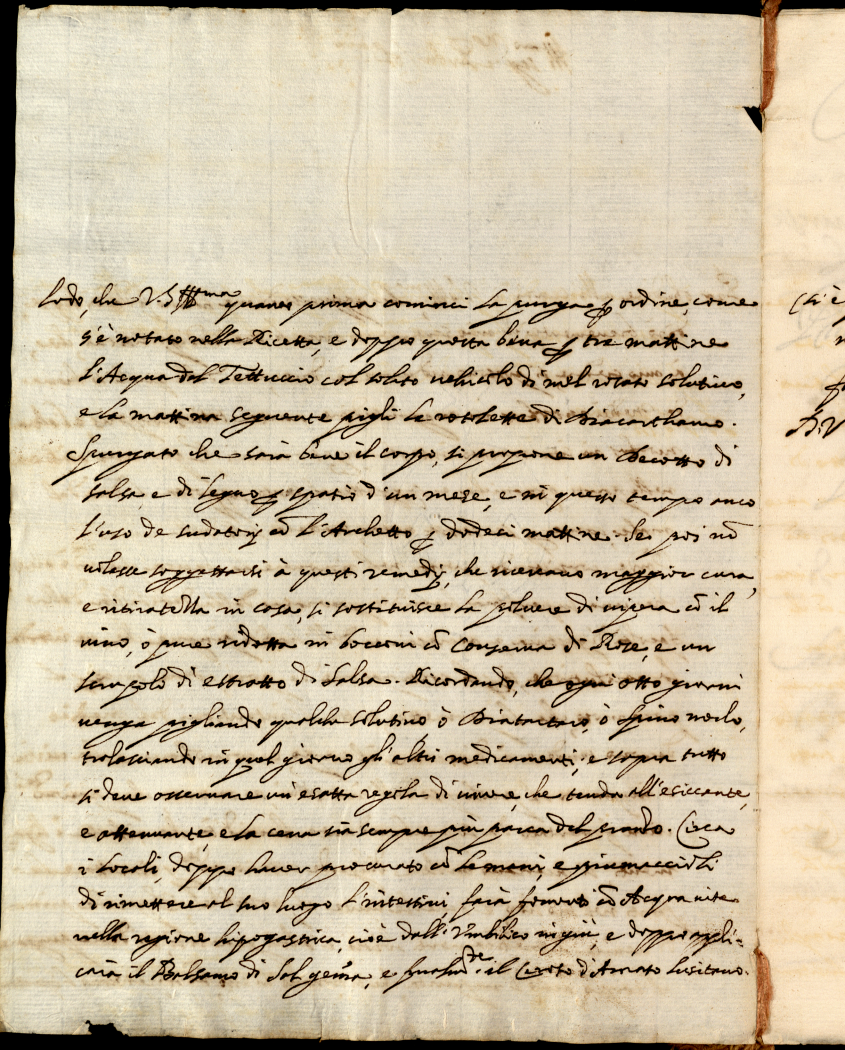 Lodo, che V.S. Ill.ma quanto prima cominci la purga p ordine, come
s'è notato nella Ricetta, e doppo questa beva p tre mattine
l'Acqua del Tettuccio col solito vehicolo di mel rosato solutivo,
e la mattina seguente pigli le rotolette di Diacarthamo.
Spurgato che sarà bene il corpo, si propone un Decotto di
salsa, e di legno p spatio d'un mese, e in questo tempo anco
l'uso de sudatorij cō l'Archetto p dodeci mattine. Se poi nō
volesse soggettarsi à questi remedij, che ricercano maggior cura,
e ritiratezza in casa, si sostituisce la polvere di vipera cō il
vino, ò pure ridotta in bocconi cō Conserva di Rose, e un
scrupolo di estratto di Salsa. Ricordando, che ogni otto giorni
venga pigliando qualche solutivo ò Diatartaro, ò Spino merlo,
tralasciando in quel giorno gl'altri medicamenti, e sopra tutto
si deve osservare un'esatta regola di vivere, che tenda all'esiccante,
e attenuante, e la cena sia sempre più parca del pranzo. Circa
i locali, doppo haver procurato cō le mani, e piumaccioli
di rimettere al suo luogo l'intestini, farà fomenti cō Acqua vite
nella regione hipogastrica, cioè dall'Umbilico in giù, e doppo appli-
carà il Balsamo di Sal gem̄a, e finalm.te il Ceroto d'Amato Lusitano.